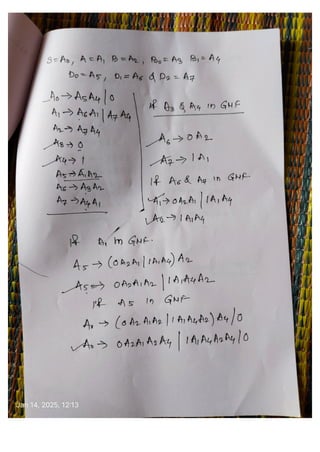 S=A0, A=A1 B=A2, B0=A3 B1=A4
D0=A5, D1=A6 & D2=A7
A0→A5A4|0
A1→A6A1|A7A4
A2→A7A4
A3→0
A4→1
A5→A1A2
A6→A3A2
A7→A4A1
If A3 & A4 in GNF
A6→0A2
A7→1A1
If A6 & A7 in GNF
A1→0A2A1|1A1A4
A2→1A1A4
If A1 in GNF.
A5→(0A2A1|1A1A4)A2
A5→0A2A1A2|1A1A4A2
If A5 in GNF
A0→(0A2A1A2|1A1A4A2)A4/0
A0→0A2A1A2A4|1A1A4A2A4|0
Jan 14, 2025, 12:13